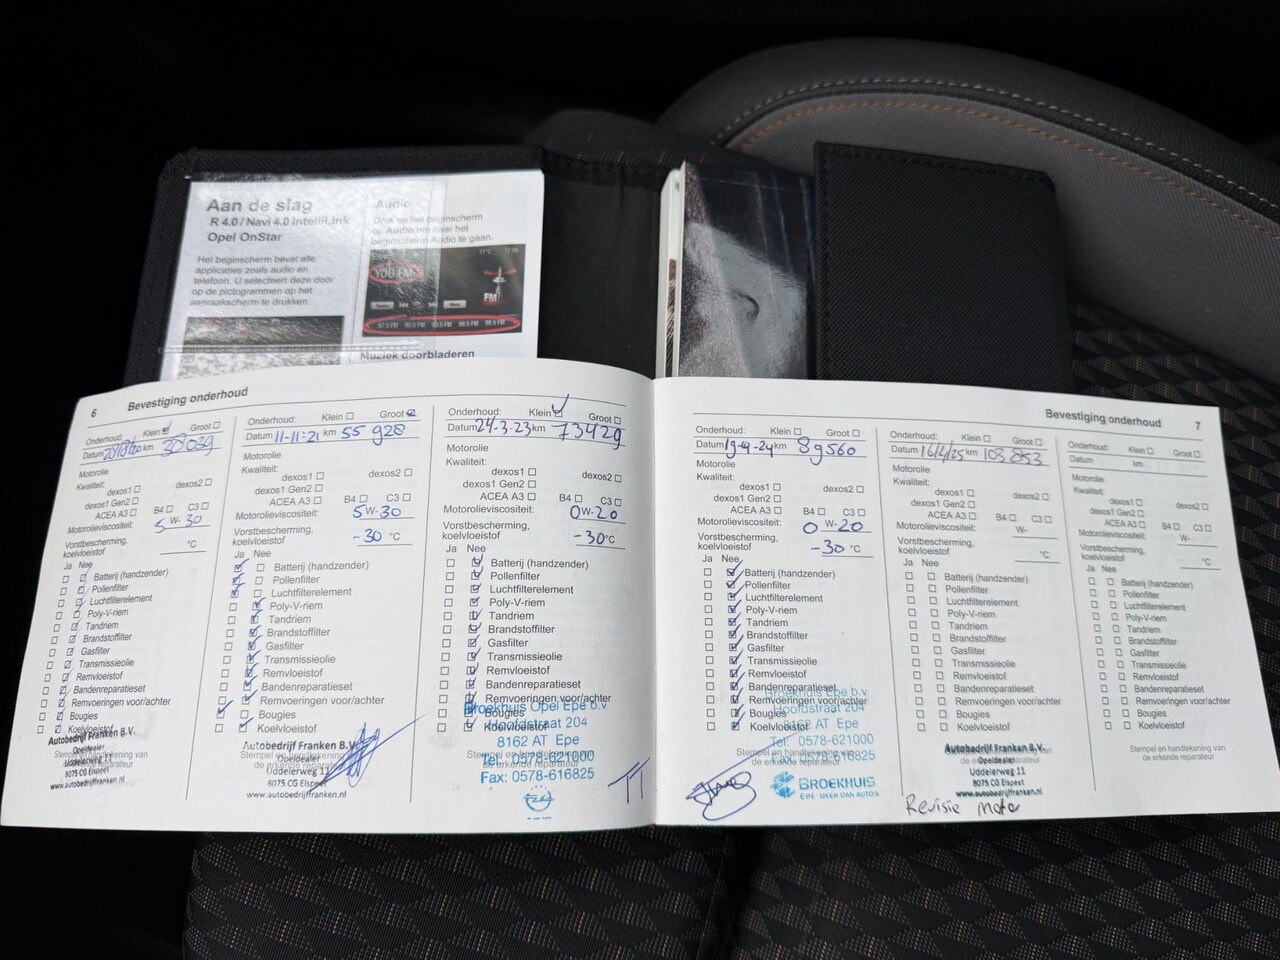 Aan de slag
R 4.0 / Navi 4.0 IntelliLink
Opel OnStar
Het beginscherm bevat alle
applicaties zoals audio en
telefoon. U selecteert deze door
op de pictogrammen op het
aanraakscherm te drukken.
Audio
Druk op het beginscherm
op Audio om naar het
beginscherm Audio te gaan.
YOU FM
FM
Muziek doorbladeren
6 Bevestiging onderhoud
Onderhoud: Klein Groot
Datum km 30039
Motorolie
Kwaliteit:
dexos1 dexos2
dexos1 Gen2
ACEA A3 B4 C3
Motorolieviscositeit:
5 W- 30
Vorstbescherming,
koelvloeistof °C
Ja Nee
Batterij (handzender)
Pollenfilter
Luchtfilterelement
Poly-V-riem
Tandriem
Brandstoffilter
Gasfilter
Transmissieolie
Remvloeistof
Bandenreparatieset
Remvoeringen voor/achter
Bougies
Koelvloeistof
Stempel en handtekening van
de erkende reparateur
Autobedrijf Franken B.V.
Opeldealer
Uddelerweg 11
8075 CG Elspeet
www.autobedrijffranken.nl
Onderhoud: Klein Groot
Datum 11-11-21 km 55 928
Motorolie
Kwaliteit:
dexos1 dexos2
dexos1 Gen2
ACEA A3 B4 C3
Motorolieviscositeit: 5 W-30
Vorstbescherming,
koelvloeistof -30 °C
Ja Nee
Batterij (handzender)
Pollenfilter
Luchtfilterelement
Poly-V-riem
Tandriem
Brandstoffilter
Gasfilter
Transmissieolie
Remvloeistof
Bandenreparatieset
Remvoeringen voor/achter
Bougies
Koelvloeistof
Stempel en handtekening van
de erkende reparateur
Autobedrijf Franken B.V.
Opeldealer
Uddelerweg 11
8075 CG Elspeet
www.autobedrijffranken.nl
Onderhoud: Klein Groot
Datum 24-3-23 km 73429
Motorolie
Kwaliteit:
dexos1 dexos2
dexos1 Gen2
ACEA A3 B4 C3
Motorolieviscositeit: 0 W-20
Vorstbescherming,
koelvloeistof -30 °C
Ja Nee
Batterij (handzender)
Pollenfilter
Luchtfilterelement
Poly-V-riem
Tandriem
Brandstoffilter
Gasfilter
Transmissieolie
Remvloeistof
Bandenreparatieset
Remvoeringen voor/achter
Bougies
Koelvloeistof
Stempel en handtekening van
de erkende reparateur
Broekhuis Opel Epe b.v.
Hoofdstraat 204
8162 AT Epe
Tel: 0578-621000
Fax: 0578-616825
Bevestiging onderhoud 7
Onderhoud: Klein Groot
Datum 19-4-24 km 89560
Motorolie
Kwaliteit:
dexos1 dexos2
dexos1 Gen2
ACEA A3 B4 C3
Motorolieviscositeit: 0 W-20
Vorstbescherming,
koelvloeistof -30 °C
Ja Nee
Batterij (handzender)
Pollenfilter
Luchtfilterelement
Poly-V-riem
Tandriem
Brandstoffilter
Gasfilter
Transmissieolie
Remvloeistof
Bandenreparatieset
Remvoeringen voor/achter
Bougies
Koelvloeistof
Stempel en handtekening van
de erkende reparateur
Broekhuis Epe b.v.
Hoofdstraat 204
8162 AT Epe
Tel: 0578-621000
Fax: 0578-616825
BROEKHUIS
EPE MEER DAN AUTO'S
Onderhoud: Klein Groot
Datum 16/4/25 km 103 853
Motorolie
Kwaliteit:
dexos1 dexos2
dexos1 Gen2
ACEA A3 B4 C3
Motorolieviscositeit: W-
Vorstbescherming,
koelvloeistof °C
Ja Nee
Batterij (handzender)
Pollenfilter
Luchtfilterelement
Poly-V-riem
Tandriem
Brandstoffilter
Gasfilter
Transmissieolie
Remvloeistof
Bandenreparatieset
Remvoeringen voor/achter
Bougies
Koelvloeistof
Autobedrijf Franken B.V.
Opeldealer
Uddelerweg 11
8075 CG Elspeet
www.autobedrijffranken.nl
Revisie Motor
Onderhoud: Klein Groot
Datum km
Motorolie
Kwaliteit:
dexos1 dexos2
dexos1 Gen2
ACEA A3 B4 C3
Motorolieviscositeit: W-
Vorstbescherming,
koelvloeistof °C
Ja Nee
Batterij (handzender)
Pollenfilter
Luchtfilterelement
Poly-V-riem
Tandriem
Brandstoffilter
Gasfilter
Transmissieolie
Remvloeistof
Bandenreparatieset
Remvoeringen voor/achter
Bougies
Koelvloeistof
Stempel en handtekening van
de erkende reparateur